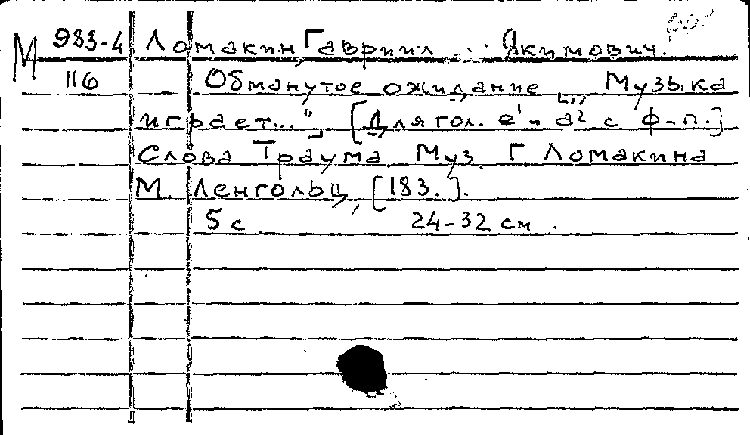 М 983-4 Ломакин, Гавриил ... Якимович.
116 Обманутое ожидание ["Музыка
играет..."] [Для гол. e¹-a² с ф-п.]
Слова Траума Муз. Г Ломакина
М. Ленгольц, [183.].
5 с 24-32 см.